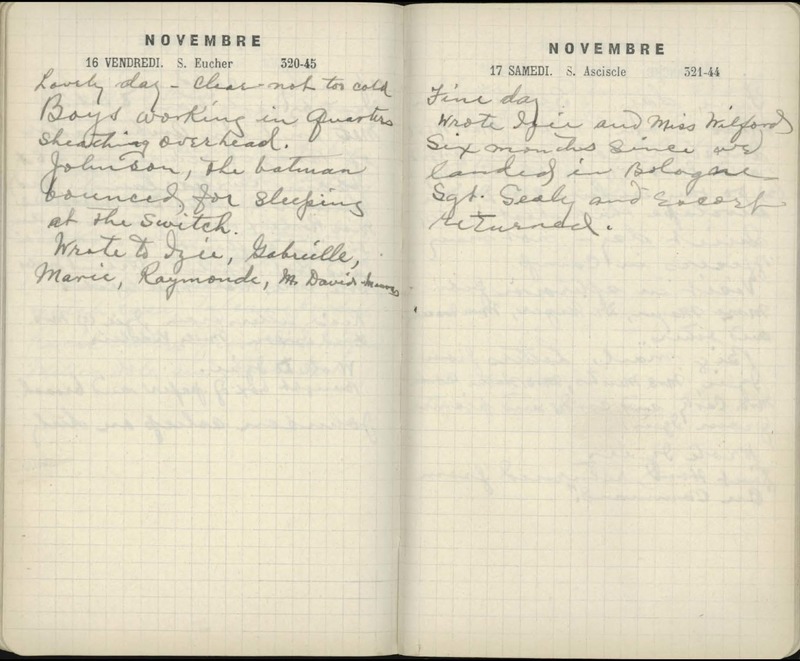 NOVEMBRE
16 VENDREDI. S. Eucher 320-45
Lovely day - clear - not too cold
Boys working in Quarters
sheathing overhead.
Johnson, the batman
bounced for sleeping
at the switch.
Wrote to Izie, Gabrielle,
Marie, Raymonde, M. David
NOVEMBRE
17 SAMEDI. S. Asciscle 321-44
Fine day
Wrote Izie and Miss Wilford
Six months since we
landed in Bologne
Sgt. Sealy and Escort
returned.